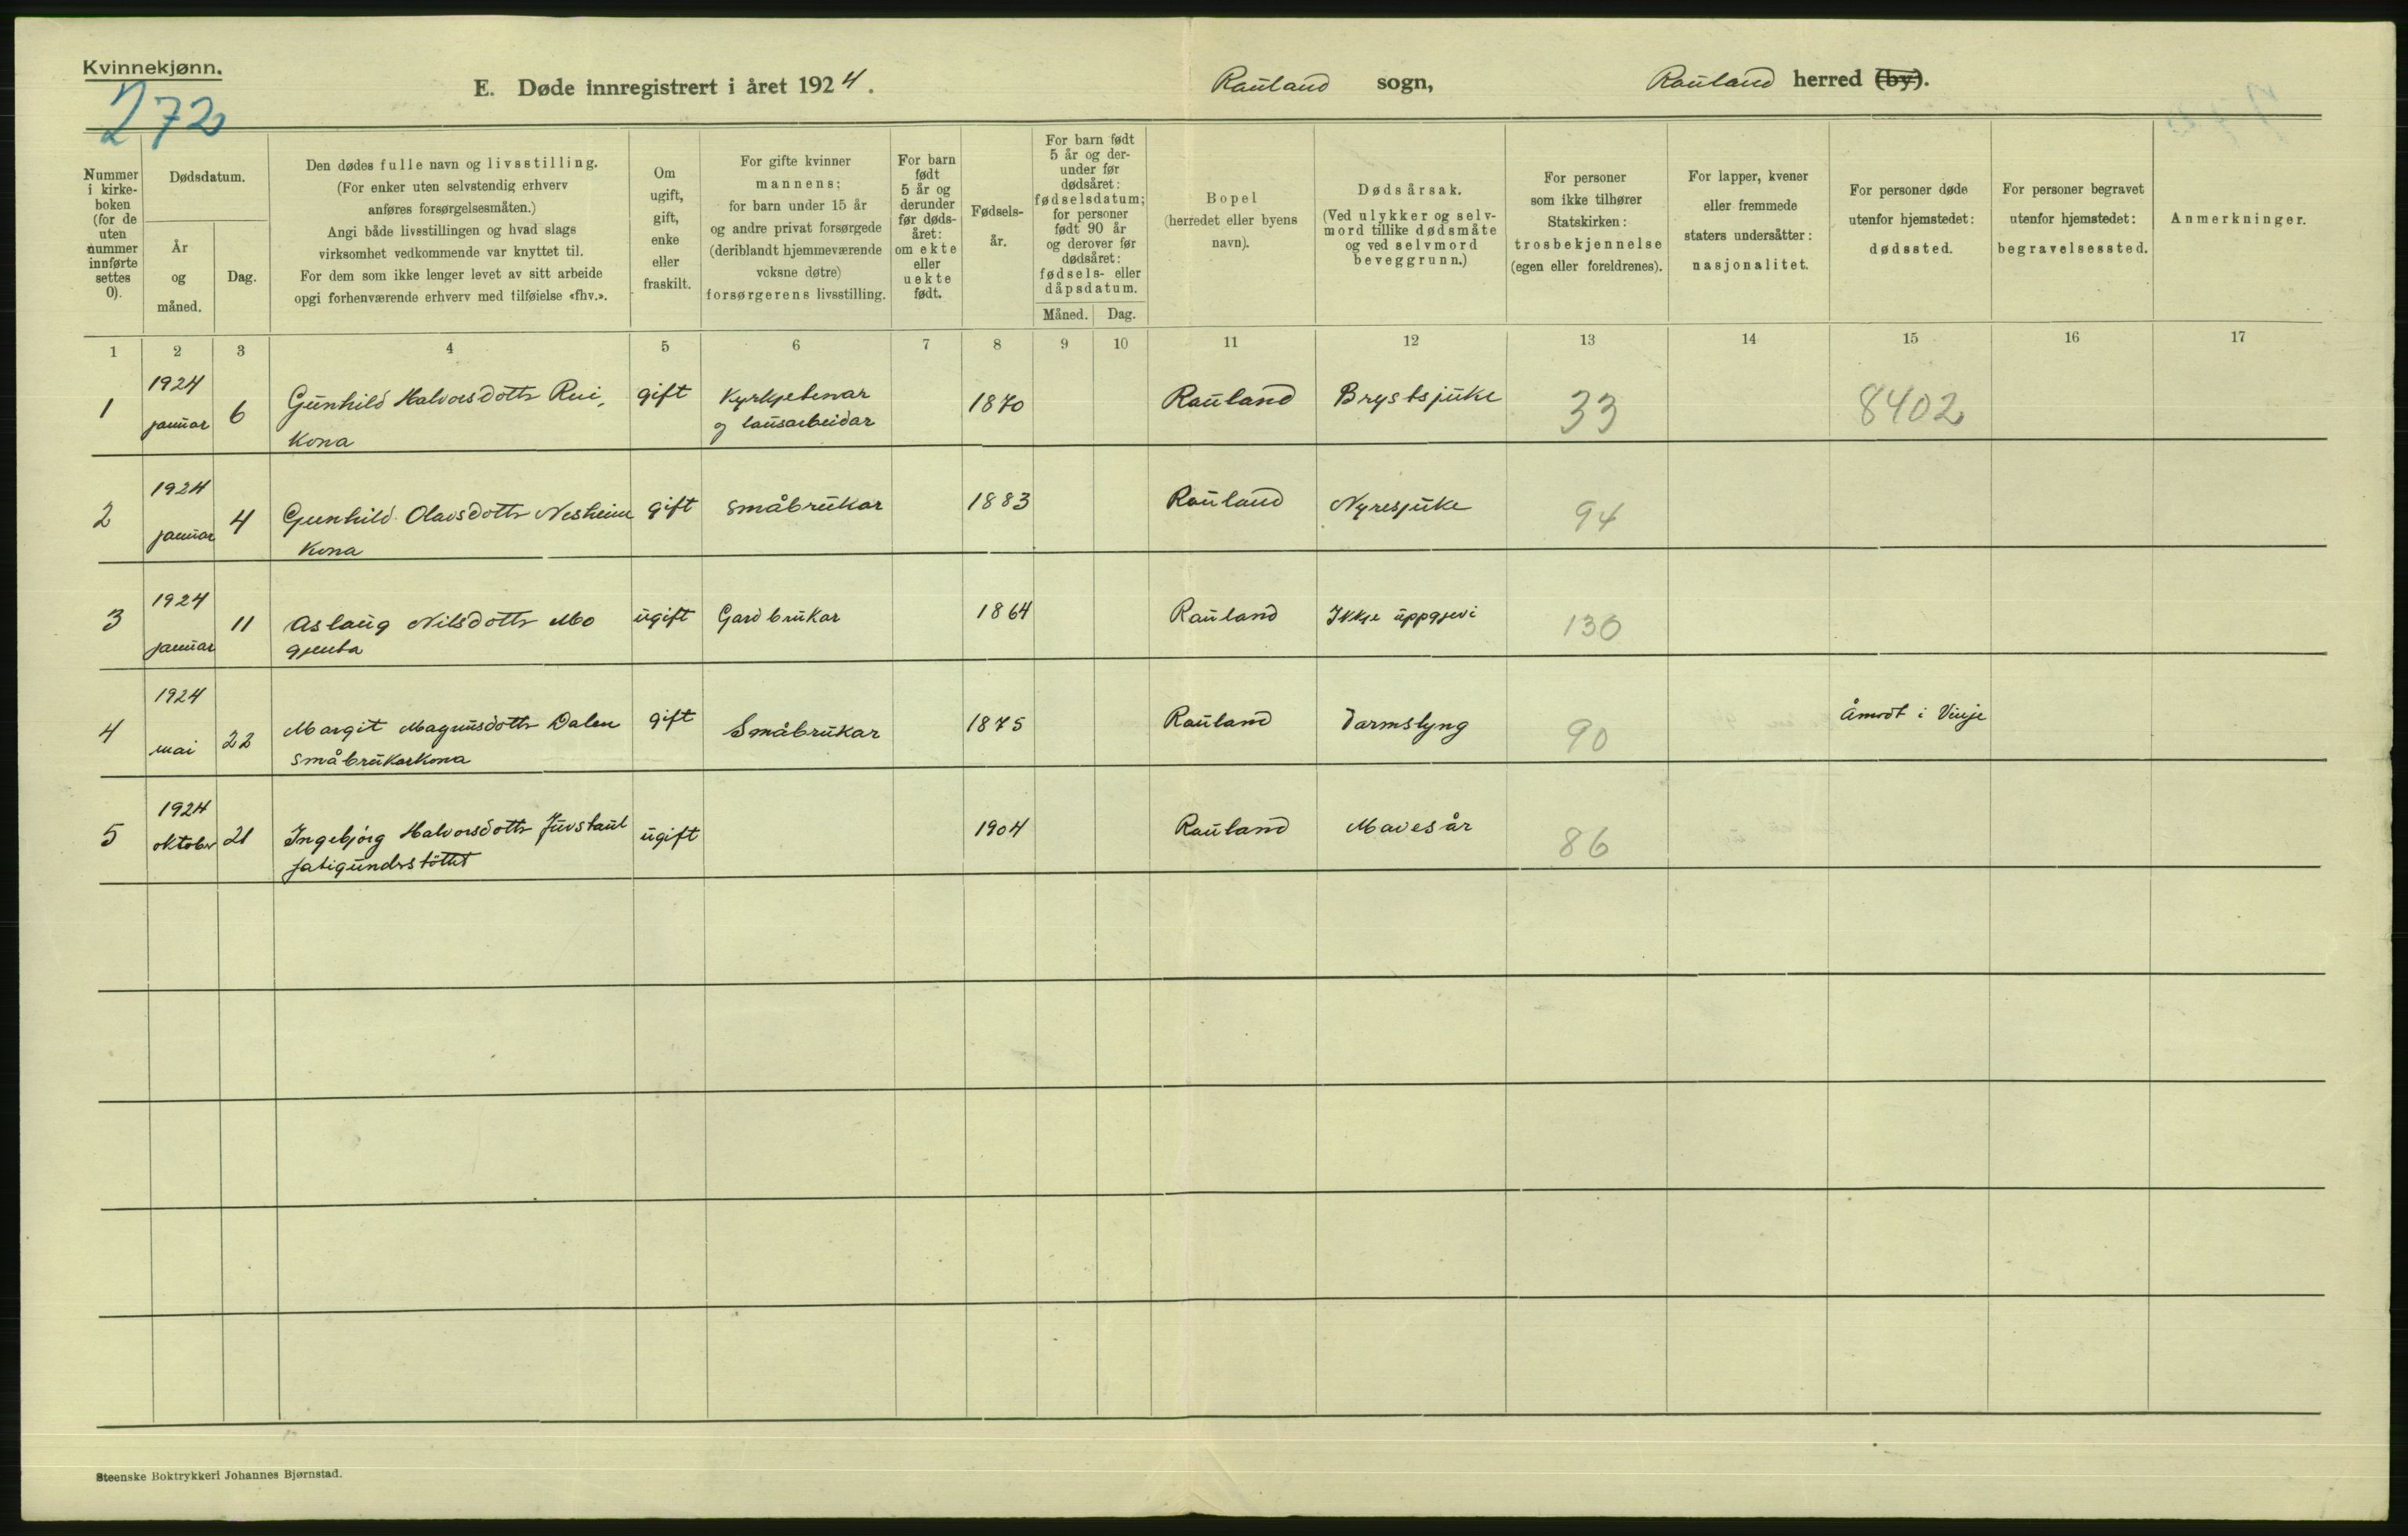 Kvinnekjønn.
272
E. Døde innregistrert i året 1924.
Rauland sogn,
Rauland herred (by).
Nummer
i kirke-
boken
(for de
uten
nummer
innførte
settes
0).
Dødsdatum.
År
og
måned.
Dag.
Den dødes fulle navn og livsstilling.
(For enker uten selvstendig erhverv
anføres forsørgelsesmåten.)
Angi både livsstillingen og hvad slags
virksomhet vedkommende var knyttet til.
For dem som ikke lenger levet av sitt arbeide
opgi forhenværende erhverv med tilføielse «fhv.».
Om
ugift,
gift,
enke
eller
fraskilt.
For gifte kvinner
mannens;
for barn under 15 år
og andre privat forsørgede
(deriblandt hjemmeværende
voksne døtre)
forsørgerens livsstilling.
For barn
født
5 år og
derunder
før døds-
året:
om ekte
eller
uekte
født.
Fødsels-
år.
For barn født
5 år og der-
under før
dødsåret:
fødselsdatum;
for personer
født 90 år
og derover før
dødsåret:
fødsels- eller
dåpsdatum.
Måned. Dag.
Bopel
(herredet eller byens
navn).
Dødsårsak.
(Ved ulykker og selv-
mord tillike dødsmåte
og ved selvmord
beveggrunn.)
For personer
som ikke tilhører
Statskirken:
trosbekjennelse
(egen eller foreldrenes).
For lapper, kvener
eller fremmede
staters undersåtter:
nasjonalitet.
For personer døde
utenfor hjemstedet:
dødssted.
For personer begravet
utenfor hjemstedet:
begravelsessted.
Anmerkninger.
1 2 3 4 5 6 7 8 9 10 11 12 13 14 15 16 17
1924
1 januar 6 Gunhild Halvorsdottr Rui, gift Kyrkjetenar 1870 Rauland Brystsjuke 33 8402
Kona og lausarbeidar
1924
2 januar 4 Gunhild Olavsdottr Nesheim gift småbrukar 1883 Rauland Nyresjuke 94
Kona
1924
3 januar 11 Aslaug Nilsdottr Mo ugift Gardbrukar 1864 Rauland Ikkje uppgjevi 130
gjenta
1924
4 mai 22 Margit Magnusdottr Dalen gift Småbrukar 1875 Rauland Tarmslyng 90 Åmot i Vinje
småbrukarkona
1924
5 oktober 21 Ingebjørg Halvorsdottr Juvstaul ugift 1904 Rauland Mavesår 86
fatigunderstöttet
Steenske Boktrykkeri Johannes Bjørnstad.